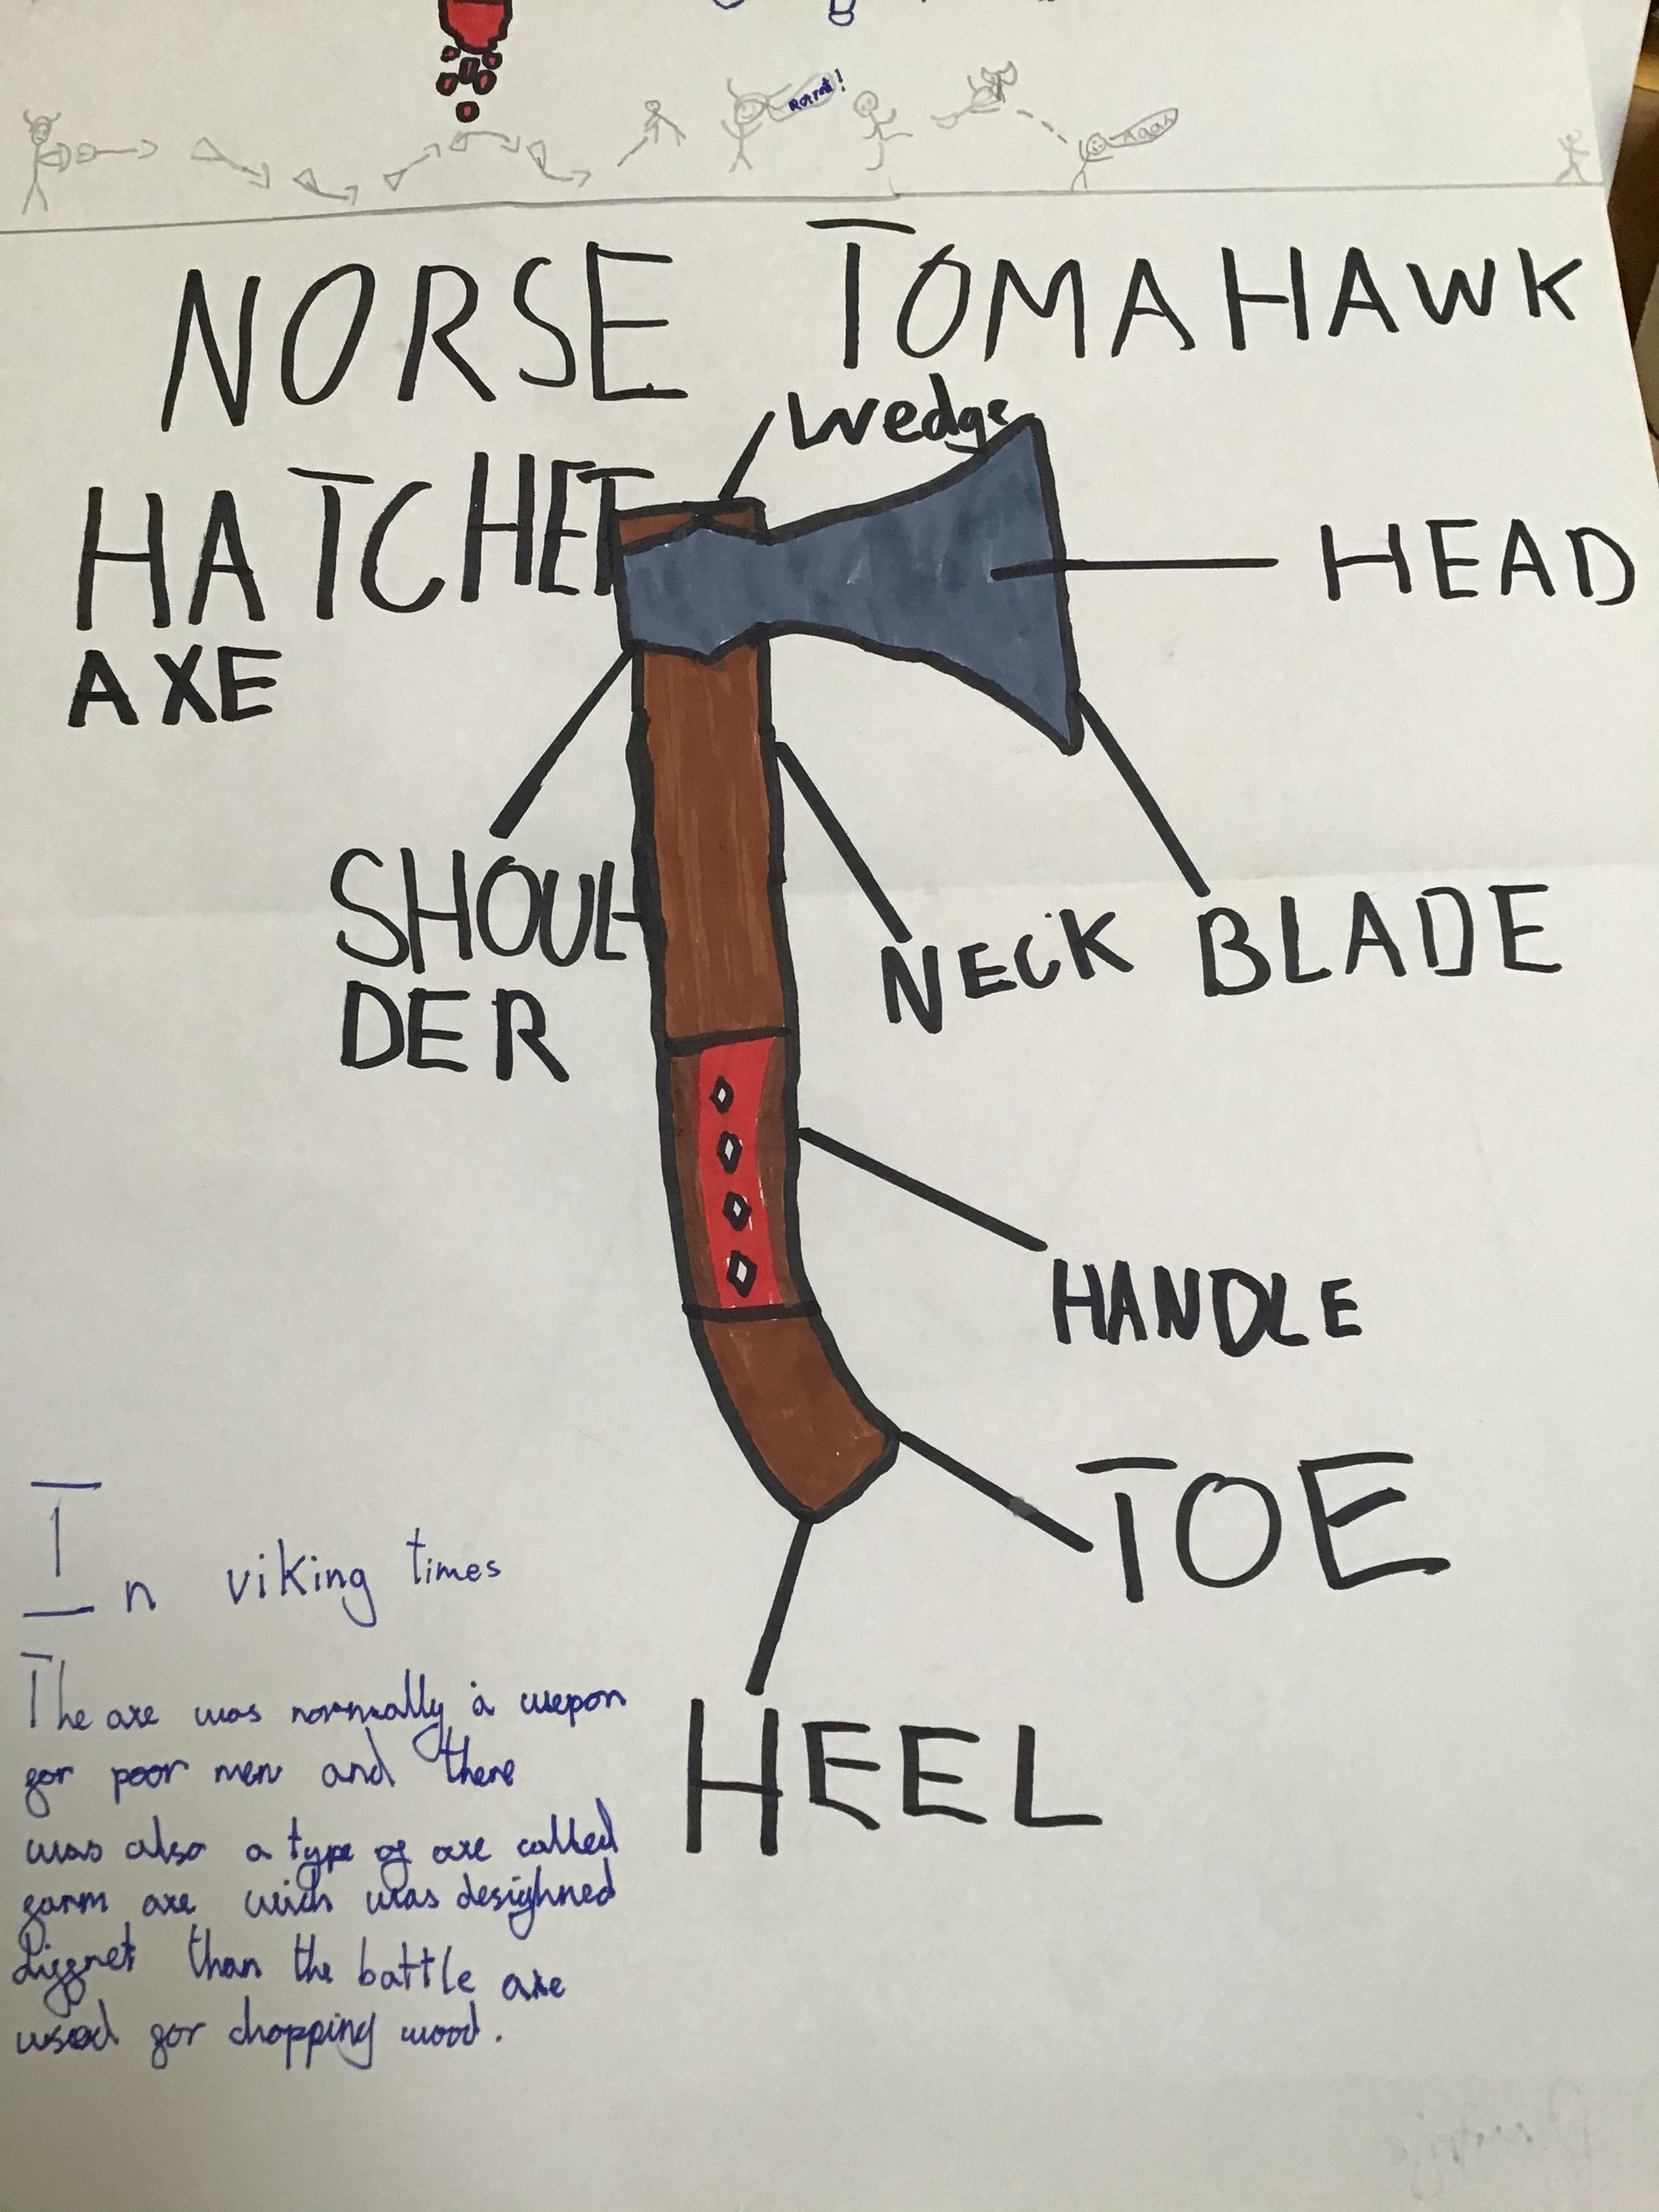 Aaah
NORSE TOMAHAWK
Wedge
HATCHET
AXE
HEAD
SHOUL-
DER
NECK BLADE
HANDLE
TOE
HEEL
In viking times
The axe was normally a wepon
for poor men and there
was also a type of axe called
farm axe wich was desighned
diffret than the battle axe
used for chopping wood.